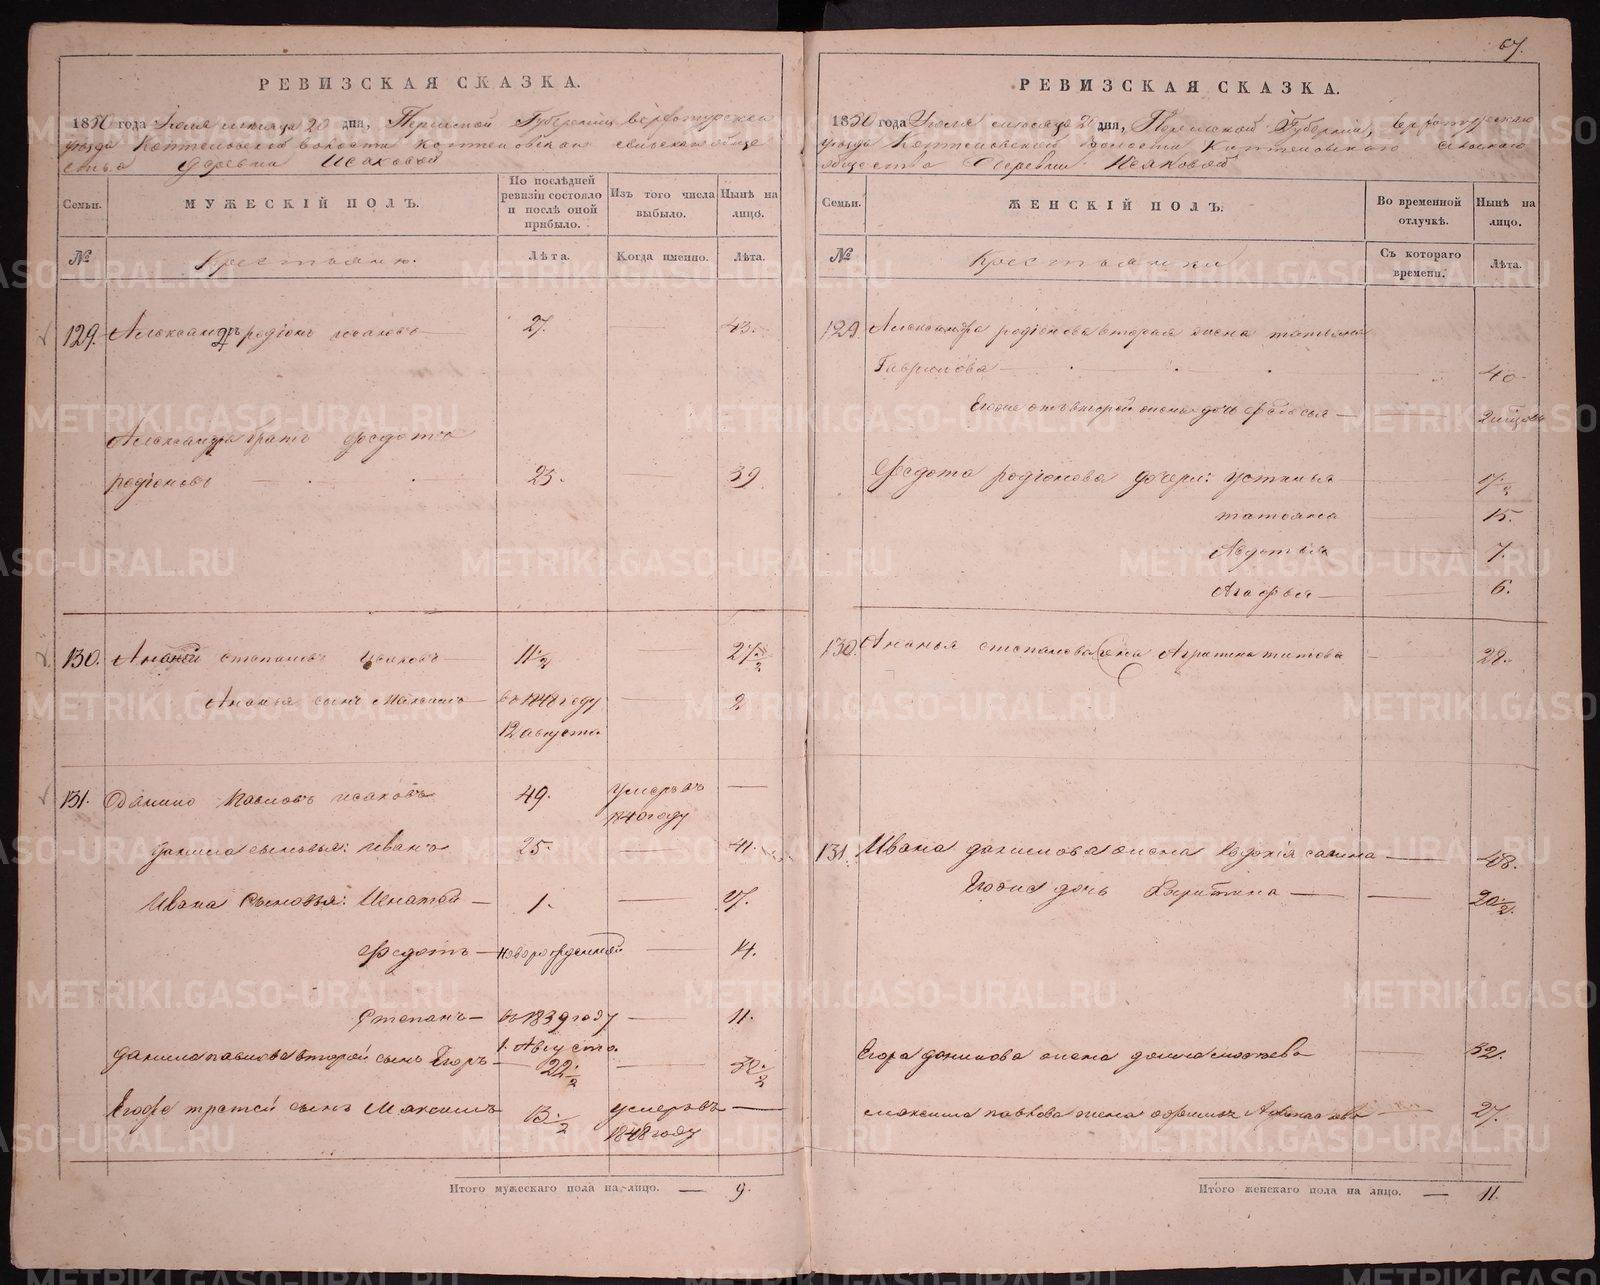 67.
РЕВИЗСКАЯ СКАЗКА.
1850 года Іюля мѣсяца 20 дня, Пермской Губерніи Верхотурскаго
уѣзда Коптеловской волости Коптеловскаго сельскаго обще
ства Деревни Исаковой
Семьи.
МУЖЕСКІЙ ПОЛЪ.
По послѣдней ревизіи состояло и послѣ оной прибыло.
Изъ того числа выбыло.
Нынѣ на лицо.
№
Крестьяне.
Лѣта.
Когда именно.
Лѣта.
129. Александръ 2й родіонъ исаковъ 27. 43.
Александра братъ Федотъ
родіоновъ 23. 39
130. Ананій степановъ исаковъ 11½ 27½
Ананья сынъ Максимъ въ 1848 году 2
12 августа
131. Данило Павловъ исаковъ 49. умеръ въ
1840 году
данила сыновья: Иванъ 25. 41.
Ивана сыновья: Игнатей 1. 17.
Федотъ новорожденной 14.
Степанъ въ 1839 году 11.
1. Августа
данила павлова второй сынъ Егоръ 22½ 38½
Егоже третей сынъ Максимъ 13½ умеръ въ
1848 году
Итого мужескаго пола на-лицо. — 9.
РЕВИЗСКАЯ СКАЗКА.
1850 года Іюля мѣсяца 20 дня, Пермской Губерніи, Верхотурскаго
уѣзда Коптеловской волости Коптеловскаго сельскаго
общества Деревни Исаковой
Семьи.
ЖЕНСКІЙ ПОЛЪ.
Во временной отлучкѣ.
Нынѣ на лицо.
№
Крестьянки
Съ котораго времени.
Лѣта.
129. Александра родіонова вторая жена татьяна
Гаврилова 40
Егоже отъ второй жены дочь Федосья
Федота родіонова дочери: устинья 17½
татьяна 15.
Авдотья 7.
Агафья 6.
130. Ананья степанова жена Аграпина титова 28.
131. Ивана данилова жена 48.
Егоже дочь 20½.
Егора данилова жена 32.
максима павлова жена 27.
Итого женскаго пола на лицо. — 11.
METRIKI.GASO-URAL.RU